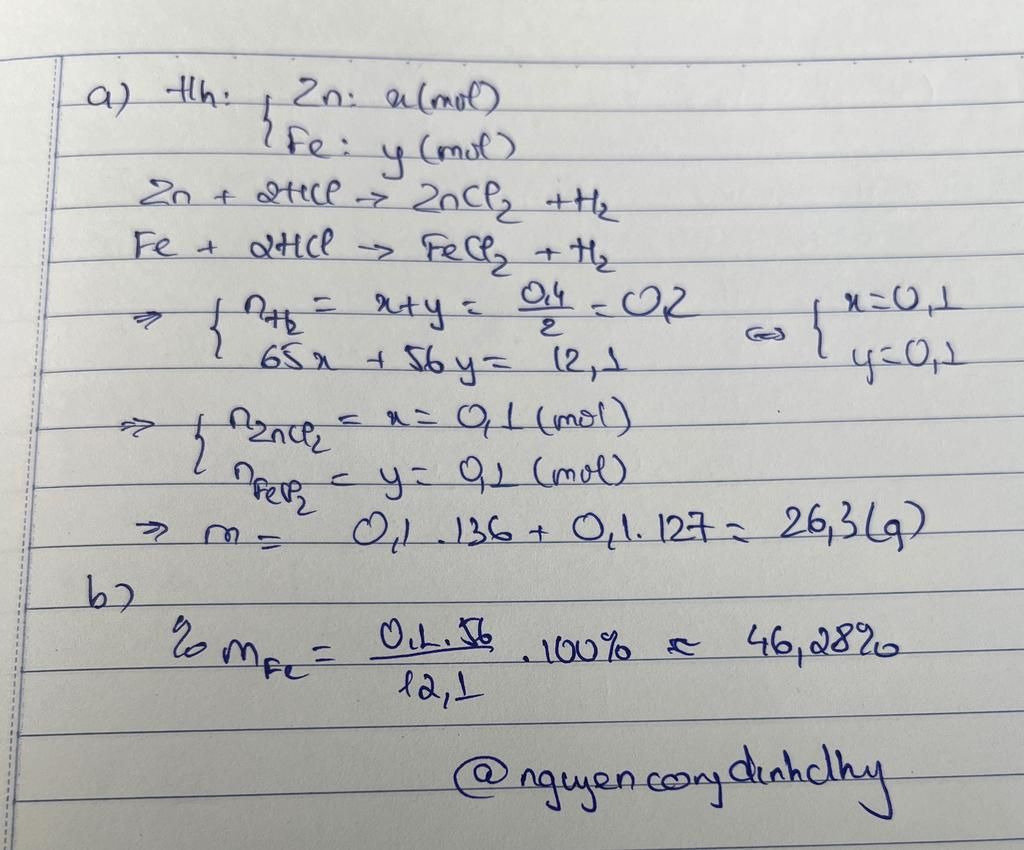 a) Hh: { Zn: x (mol)
Fe: y (mol)
Zn + 2HCl → ZnCl₂ + H₂
Fe + 2HCl → FeCl₂ + H₂
⇒ { n_H₂ = x+y = 0,4/2 = 0,2 ⇔ { x=0,1
65x + 56y = 12,1 y=0,1
⇒ { n_ZnCl₂ = x = 0,1 (mol)
n_FeCl₂ = y = 0,1 (mol)
⇒ m = 0,1 . 136 + 0,1 . 127 = 26,3 (g)
b)
% m_Fe = 0,1 . 56 / 12,1 . 100% ≈ 46,28%
@nguyencongdinhdhy